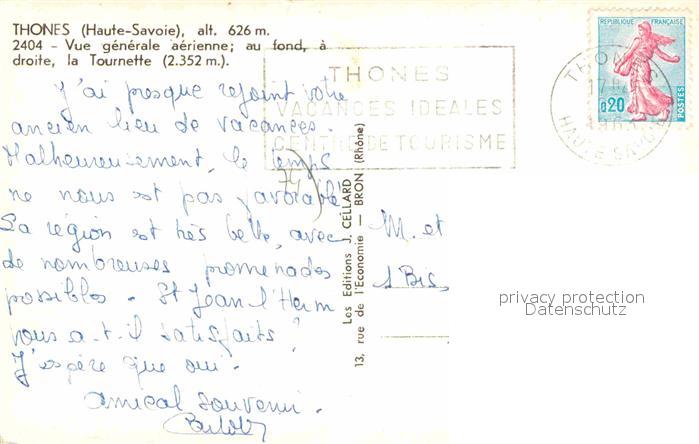 THONES (Haute-Savoie), alt. 626 m.
2404 - Vue générale aérienne; au fond, à
droite, la Tournette (2.352 m.).
REPUBLIQUE FRANÇAISE
0,20
POSTES
THONES
HAUTE-SAVOIE
THONES
VACANCES IDEALES
CENTRE DE TOURISME
J'ai presque rejoint votre
ancien lieu de vacances.
Malheureusement, le temps
ne nous est pas favorable
La région est très belle, avec
de nombreuses promenades
possibles. St Jean l'Herm
vous a.t.il satisfaits ?
J'espère que oui.
Amical souvenir.
74
Les Editions J. CELLARD
13, rue de l'Economie — BRON (Rhône)
M. et
1 Bis,
privacy protection
Datenschutz